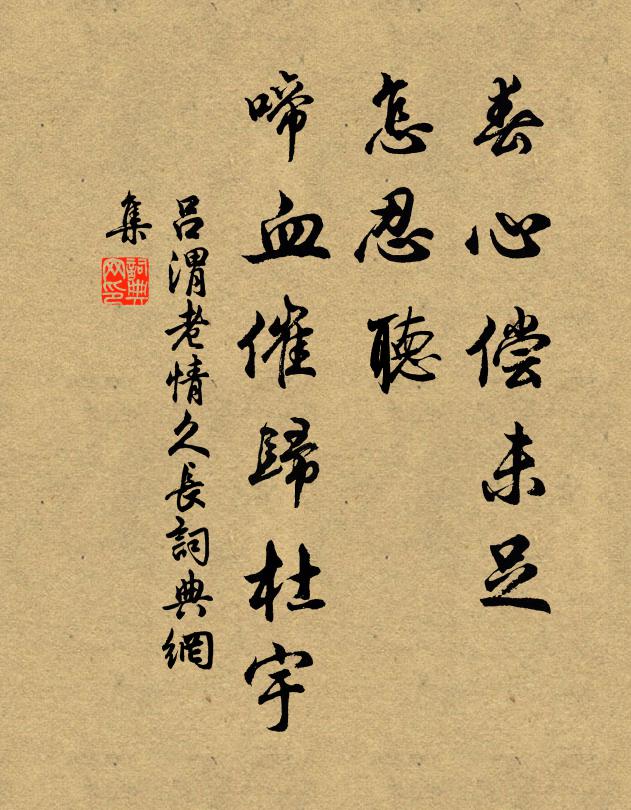 春心偿未足
怎忍聽
啼血催歸杜宇
吕渭老情久長詞典網
集
詞典
网印